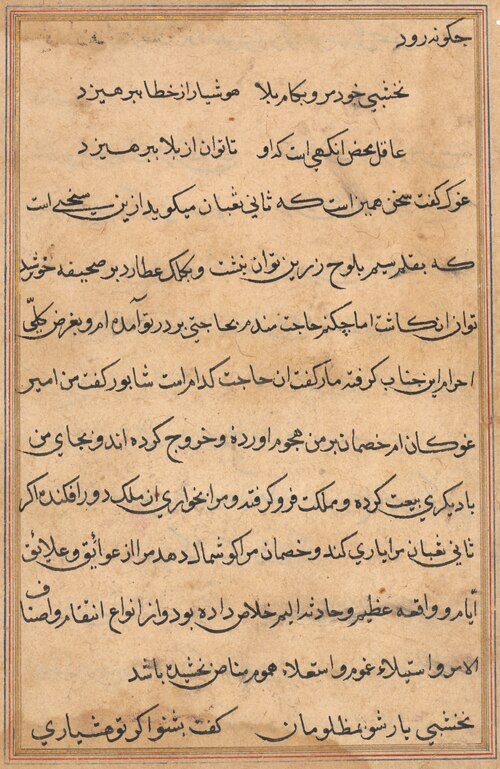 چکونه رود
نخشبی خود مرو بکام بلا   هوشیار از خطا بپرهیزد
عاقل محض انکهی است که او   تا توان از بلا بپرهیزد
غوک کفت سخن همین است که ثانی ثعبان میکوید ازین سخنی است
که بقلم سیم بلوح زرین توان نبشت و بکلک عطارد بر صحیفه خورشید
توان انکاشت اما چکنم حاجت مندم بحاجتی بر در تو آمده ام و بغرض کلّی
احرام این جناب کرفته مار کفت ان حاجت کدام است شاپور کفت من امیر
غوکان ام خصمان بر من هجوم اورده و خروج کرده اند و بجای من
با دیکری بیعت کرده و مملکت فرو کرفته و مرا بخواری از ملک دور افکنده اکر
ثانی ثعبان مرا یاری کند و خصمان مرا کوشمال دهد مرا از عوائق و علائق
ایّام و واقعه عظیم و حادثه الیم خلاص داده بود و از انواع انتقام و اصناف
الام و استیلاء غموم و استعلاء هموم مناص بخشیده باشد
نخشبی یار شو بمظلومان   کفت بشنو اکر تو هشیاری